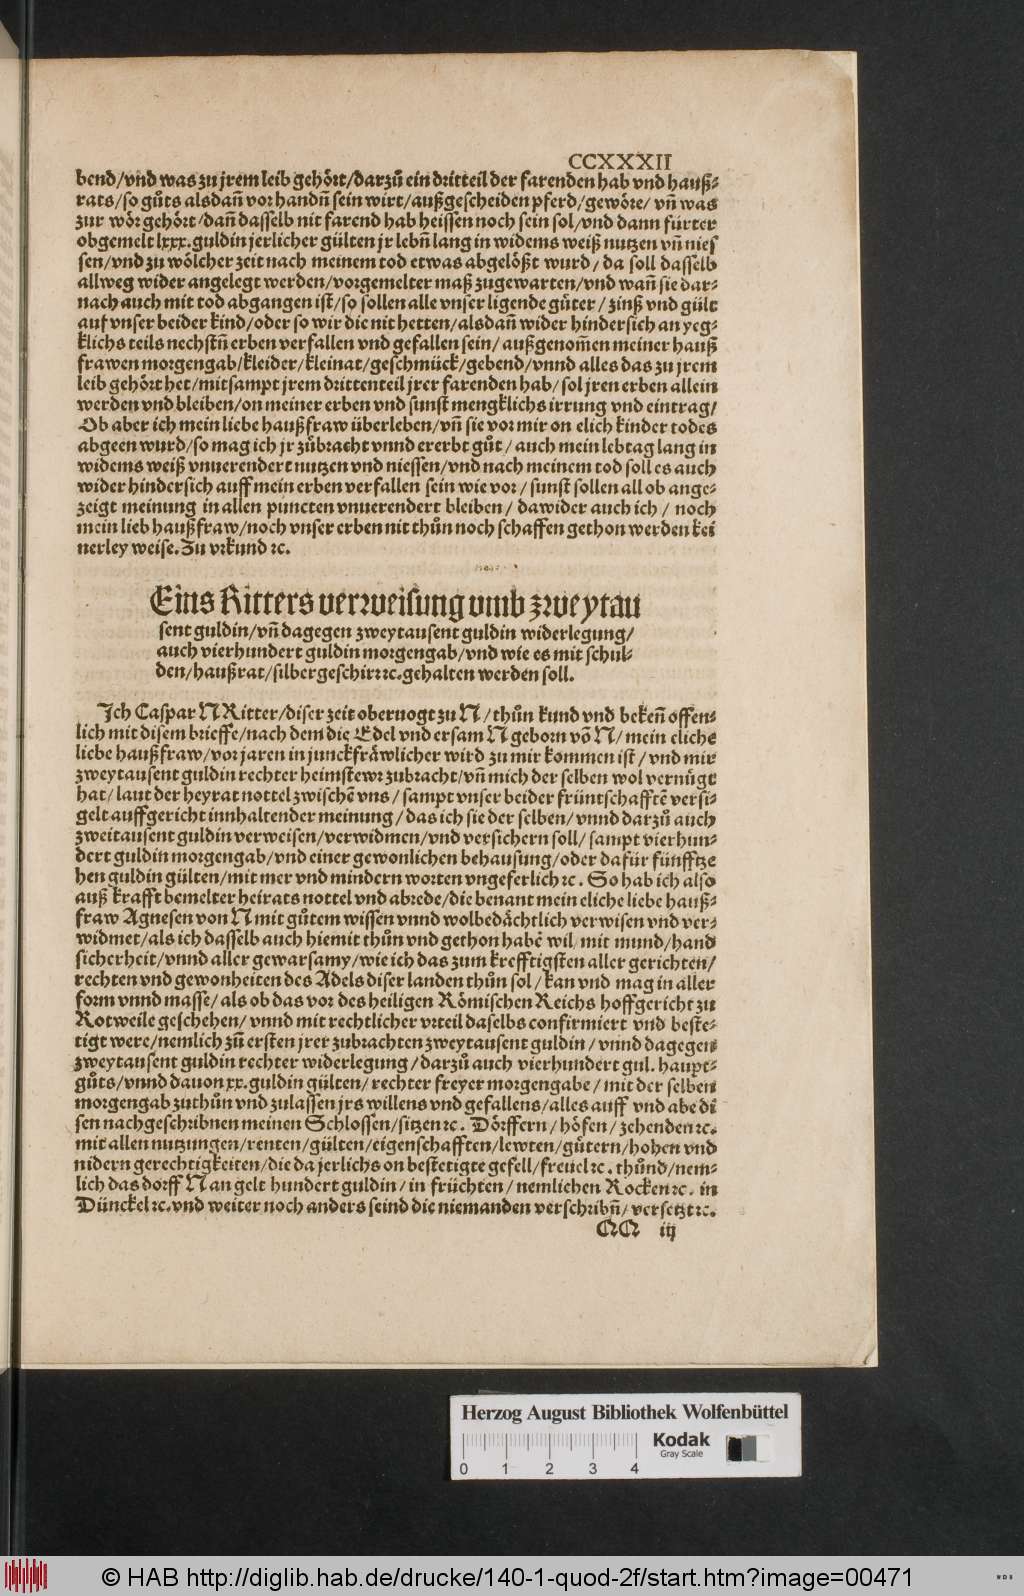 CCXXXII
bend/vnd was zu jrem leib gehört/darzů ein dritteil der farenden hab vnd hauß⸗
rats/so gůts alsdañ vor handñ sein wirt/außgescheiden pferd/gewöre/ vñ was
zur wör gehört/dañ dasselb nit farend hab heissen noch sein sol/vnd dann fürter
obgemelt lxxx.guldin jerlicher gülten jr lebñ lang in widems weiß nutzen vñ nies
sen/vnd zu wölcher zeit nach meinem tod etwas abgelößt wurd/ da soll dasselb
allweg wider angelegt werden/vorgemelter maß zugewarten/vnd wañ sie dar⸗
nach auch mit tod abgangen ist/so sollen alle vnser ligende gůter/ zinß vnd gült
auf vnser beider kind/oder so wir die nit hetten/alsdañ wider hindersich an yeg⸗
klichs teils nechstñ erben verfallen vnd gefallen sein/ außgenom̄en meiner hauß
frawen morgengab/kleider/kleinat/geschmück/gebend/vnnd alles das zu jrem
leib gehört het/mitsampt jrem drittenteil jrer farenden hab/ sol jren erben allein
werden vnd bleiben/on meiner erben vnd sunst mengklichs irrung vnd eintrag/
Ob aber ich mein liebe haußfraw überleben/vñ sie vor mir on elich kinder todes
abgeen wurd/so mag ich jr zůbracht vnnd ererbt gůt/ auch mein lebtag lang in
widems weiß vnuerendert nutzen vnd niessen/vnd nach meinem tod soll es auch
wider hindersich auff mein erben verfallen sein wie vor/ sunst sollen all ob ange⸗
zeigt meinung in allen puncten vnuerendert bleiben/ dawider auch ich/ noch
mein lieb haußfraw/noch vnser erben nit thůn noch schaffen gethon werden kei
nerley weise. Zu vrkund ꝛc.
Eins Ritters verweisung vmb zweytau
sent guldin/vñ dagegen zweytausent guldin widerlegung/
auch vierhundert guldin morgengab/vnd wie es mit schul⸗
den/haußrat/silbergeschirr ꝛc. gehalten werden soll.
Ich Caspar N Ritter/diser zeit obervogt zu N/thůn kund vnd bekeñ offen⸗
lich mit disem brieffe/nach dem die Edel vnd ersam N geborn võ N/ mein eliche
liebe haußfraw/vor jaren in junckfräwlicher wird zu mir kommen ist/ vnd mir
zweytausent guldin rechter heimstewr zubracht/vñ mich der selben wol vernůgt
hat/laut der heyrat nottel zwischē vns/ sampt vnser beider früntschafftē versi⸗
gelt auffgericht innhaltender meinung/das ich sie der selben/vnnd darzů auch
zweitausent guldin verweisen/verwidmen/vnd versichern soll/sampt vierhun⸗
dert guldin morgengab/vnd einer gewonlichen behausung/oder dafür fünfftze
hen guldin gülten/mit mer vnd mindern worten vngeferlich ꝛc. So hab ich also
auß krafft bemelter heirats nottel vnd abrede/die benant mein eliche liebe hauß⸗
fraw Agnesen von N mit gůtem wissen vnnd wolbedächtlich verwisen vnd ver⸗
widmet/als ich dasselb auch hiemit thůn vnd gethon habē wil/ mit mund/hand
sicherheit/vnnd aller gewarsamy/wie ich das zum krefftigsten aller gerichten/
rechten vnd gewonheiten des Adels diser landen thůn sol/kan vnd mag in aller
form vnnd masse/als ob das vor des heiligen Römischen Reichs hoffgericht zu
Rotweile geschehen/vnnd mit rechtlicher vrteil daselbs confirmiert vnd beste⸗
tigt were/nemlich zů ersten jrer zubrachten zweytausent guldin/ vnnd dagegen
zweytausent guldin rechter widerlegung/darzů auch vierhundert gul. haupt⸗
gůts/vnnd davon xx.guldin gülten/rechter freyer morgengabe/mit der selben
morgengab zuthůn vnd zulassen jrs willens vnd gefallens/alles auff vnd abe di
sen nachgeschribnen meinen Schlossen/sitzen ꝛc. Dörffern/höfen/zehenden ꝛc.
mit allen nutzungen/renten/gülten/eigenschafften/lewten/gůtern/hohen vnd
nidern gerechtigkeiten/die da jerlichs on bestetigte gefell/frevel ꝛc. thůnd/nem⸗
lich das dorff N an gelt hundert guldin/in früchten/nemlichen Rocken ꝛc. in
Dünckel ꝛc. vnd weiter noch anders seind die niemanden verschribñ/versetzt ꝛc.
QQ iij
Herzog August Bibliothek Wolfenbüttel
Kodak
Gray Scale
0 1 2 3 4
© HAB http://diglib.hab.de/drucke/140-1-quod-2f/start.htm?image=00471